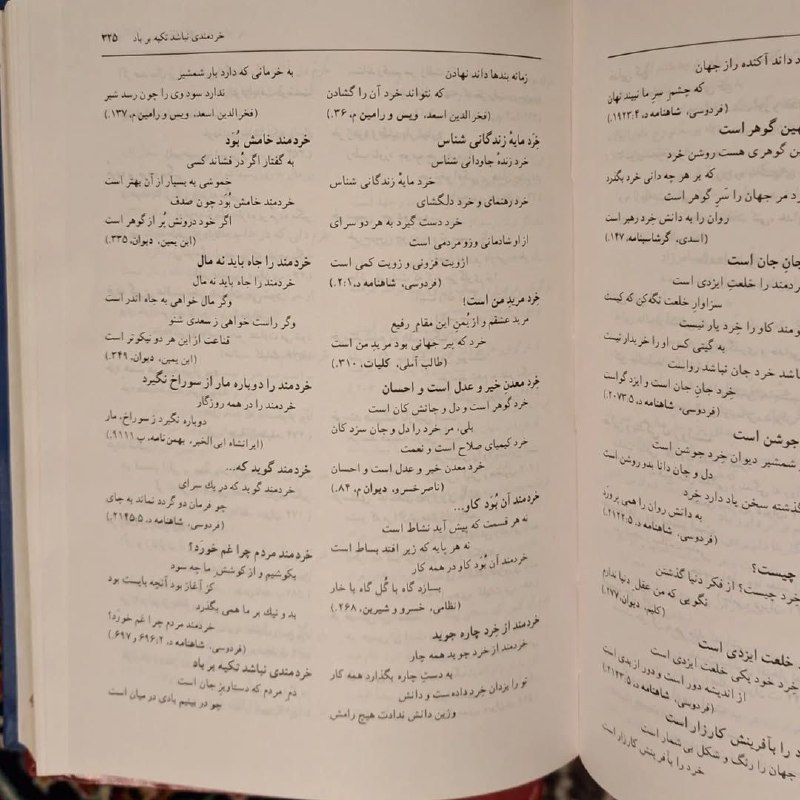 داند آکنده راز جهان
که چشمِ سرِ ما نبیند نهان
(فردوسی، شاهنامه د، ۱۹۲۳:۴.)
گوهر است
گوهری هست روشن خرد
که بر هر چه دانی خرد بگذرد
مر جهان را سَرِ گوهر است
روان را به دانش خرد رهبر است
(اسدی، گرشاسبنامه، ۱۴۷.)
جانِ جان است
را خلعتِ ایزدی است
سزاوار خلعت نگه کن که کیست
کاو را خِرد یار نیست
به گیتی کس او را خریدار نیست
خرد جان نباشد رواست
خرد جانِ جان است و ایزد گواست
(فردوسی، شاهنامه د، ۲۰۷۳:۵.)
جوشن است
شمشیر دیوان خِرد جوشن است
دل و جان دانا بدو روشن است
سخن یاد دارد خِرد
به دانش روان را همی پرورد
(فردوسی، شاهنامه د، ۲۱۲۲:۵.)
چیست؟
خِرد چیست؟ از فکر دنیا گذشتن
نگویی که من عقلِ دنیا ندارم
(کلیم، دیوان، ۲۷۷.)
خلعت ایزدی است
خِرد خود یکی خلعت ایزدی است
از اندیشه دور است و دور از بدی است
(فردوسی، شاهنامه د، ۲۱۲۳:۵.)
را بآفرینش کارزار است
جهان را رنگ و شکل بی شمار است
خرد را بآفرینش کارزار است
خردمندی نباشد تکیه بر باد ۳۲۵
زمانه بندها داند نهادن
که نتواند خرد آن را گشادن
(فخرالدین اسعد، ویس و رامین م، ۳۶.)
خِرَد مایهٔ زندگانی شناس
خرد زندهٔ جاودانی شناس
خرد مایهٔ زندگانی شناس
خرد رهنمای و خرد دلگشای
خرد دست گیرد به هر دو سرای
ازو شادمانی وزو مردمی است
ازویت فزونی و زویت کمی است
(فردوسی، شاهنامه د، ۲:۱.)
خِرد مریدِ من است!
مرید عشقم و از یُمنِ این مقامِ رفیع
خرد که پیر جهانی بود مریدِ من است
(طالب آملی، کلیات، ۳۱۰.)
خِرد معدن خیر و عدل است و احسان
خرد گوهر است و دل و جانش کان است
بلی، مر خرد را دل و جان سزد کان
خرد کیمیای صلاح است و نعمت
خرد معدن خیر و عدل است و احسان
(ناصرخسرو، دیوان م، ۸۴.)
خردمند آن بُوَد کاو...
نه هر قسمت که پیش آید نشاط است
نه هر پایه که زیر افتد بساط است
خردمند آن بُوَد کاو در همه کار
بسازد گاه با گُل گاه با خار
(نظامی، خسرو و شیرین، ۲۶۸.)
خردمند از خِرد چاره جوید
خردمند از خرد جوید همه چار
به دستِ چاره بگذارد همه کار
تو را یزدان خِرد داده ست و دانش
وزین دانش ندادت هیچ رامش
به خرمانی که دارد بار شمشیر
ندارد سود وی را چون رسد شیر
(فخرالدین اسعد، ویس و رامین م، ۱۳۷.)
خردمند خامش بُوَد
به گفتار اگر دُر فشاند کسی
خموشی به بسیار از آن بهتر است
خردمند خامش بُوَد چون صدف
اگر خود درونش پُر از گوهر است
(ابن یمین، دیوان، ۳۳۵.)
خردمند را جاه باید نه مال
خردمند را جاه باید نه مال
وگر مال خواهی به جاه اندر است
وگر راست خواهی ز سعدی شنو
قناعت از این هر دو نیکوتر است
(ابن یمین، دیوان، ۳۴۹.)
خردمند را دوباره مار از سوراخ نگیرد
خردمند را در همه روزگار
دوباره نگیرد ز سوراخ، مار
(ایرانشاه ابی الخیر، بهمن نامه، ب ۹۱۱۱.)
خردمند گوید که...
خردمند گوید که در یك سرای
چو فرمان دو گردد نماند به جای
(فردوسی، شاهنامه د، ۲۱۴۵:۵.)
خردمند مردم چرا غم خورَد؟
بکوشیم و از کوششِ ما چه سود
کز آغاز بود آنچه بایست بود
بد و نیك بر ما همی بگذرد
خردمند مردم چرا غم خورَد؟
(فردوسی، شاهنامه د، ۶۹۶:۲ و ۶۹۷.)
خردمندی نباشد تکیه بر باد
دمِ مردم که دستاویزِ جان است
چو در بینیم بادی در میان است